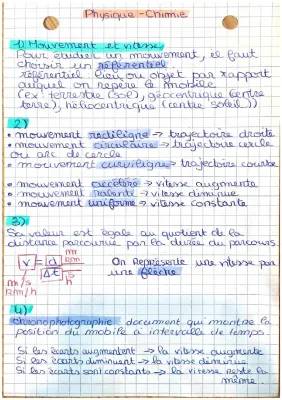 Physique - Chimie
1) Mouvement et vitesse
Pour étudier un mouvement, il faut
choisir un référentiel
référentiel: lieu ou objet par rapport
auquel on repère le mobile
(ex: terrestre (sol), géocentrique (centre
terre), héliocentrique (centre soleil))
2)
• mouvement rectiligne → trajectoire droite
• mouvement circulaire → trajectoire cercle
ou arc de cercle
• mouvement curviligne → trajectoire courbe
• mouvement accéléré → vitesse augmente
• mouvement ralenti → vitesse diminue
• mouvement uniforme → vitesse constante
3)
Sa valeur est égale au quotient de la
distance parcourue par la durée du parcours
v = d m km
Δt s h
m/s
km/h
On représente une vitesse par
une flèche
4)
chronophotographie: document qui montre la
position du mobile à intervalle de temps
Si les écarts augmentent → la vitesse augmente
Si les écarts diminuent → la vitesse diminue
Si les écarts sont constants → la vitesse reste la
même.